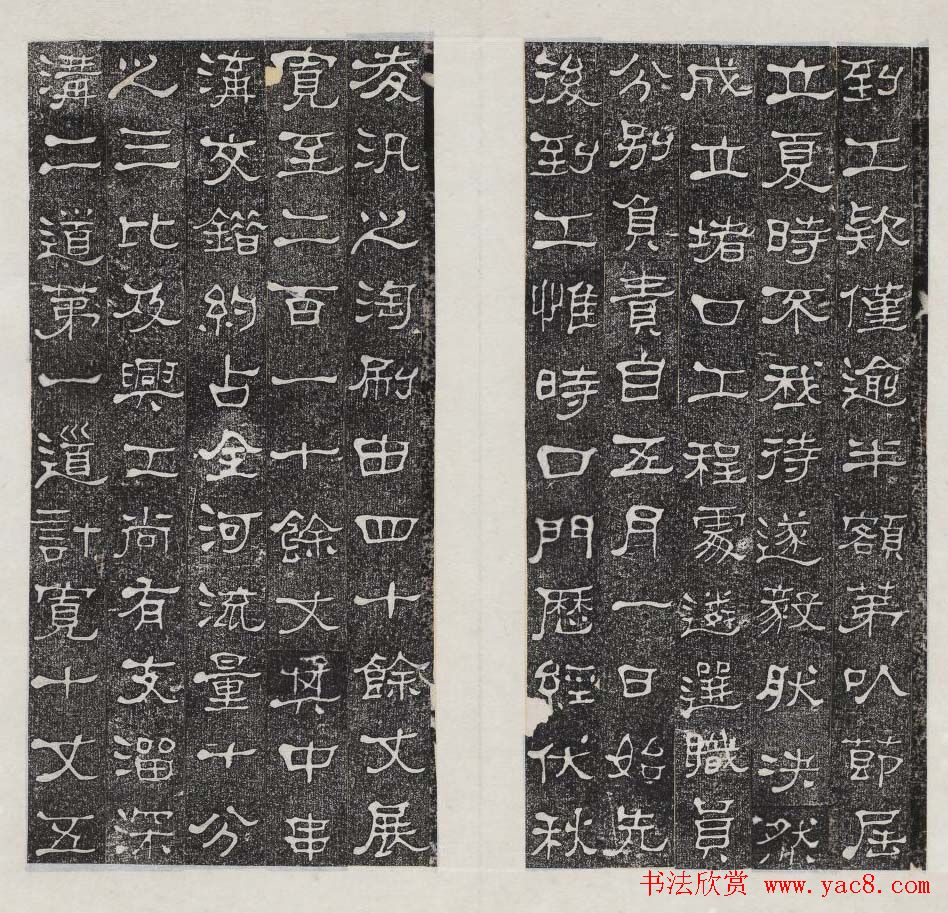 到工款僅逾半額第以節屆
立夏時不我待遂毅肰決然
成立堵口工程處遴選職員
分別負責自五月一日始先
後到工惟時口門歷經伏秋
凌汛之淘刷由四十餘丈展
寬至二百一十餘丈其中串
溝交錯約占全河流量十分
之三比及興工尚有支溜深
溝二道第一道計寬十丈五
书法欣赏 www.yac8.com